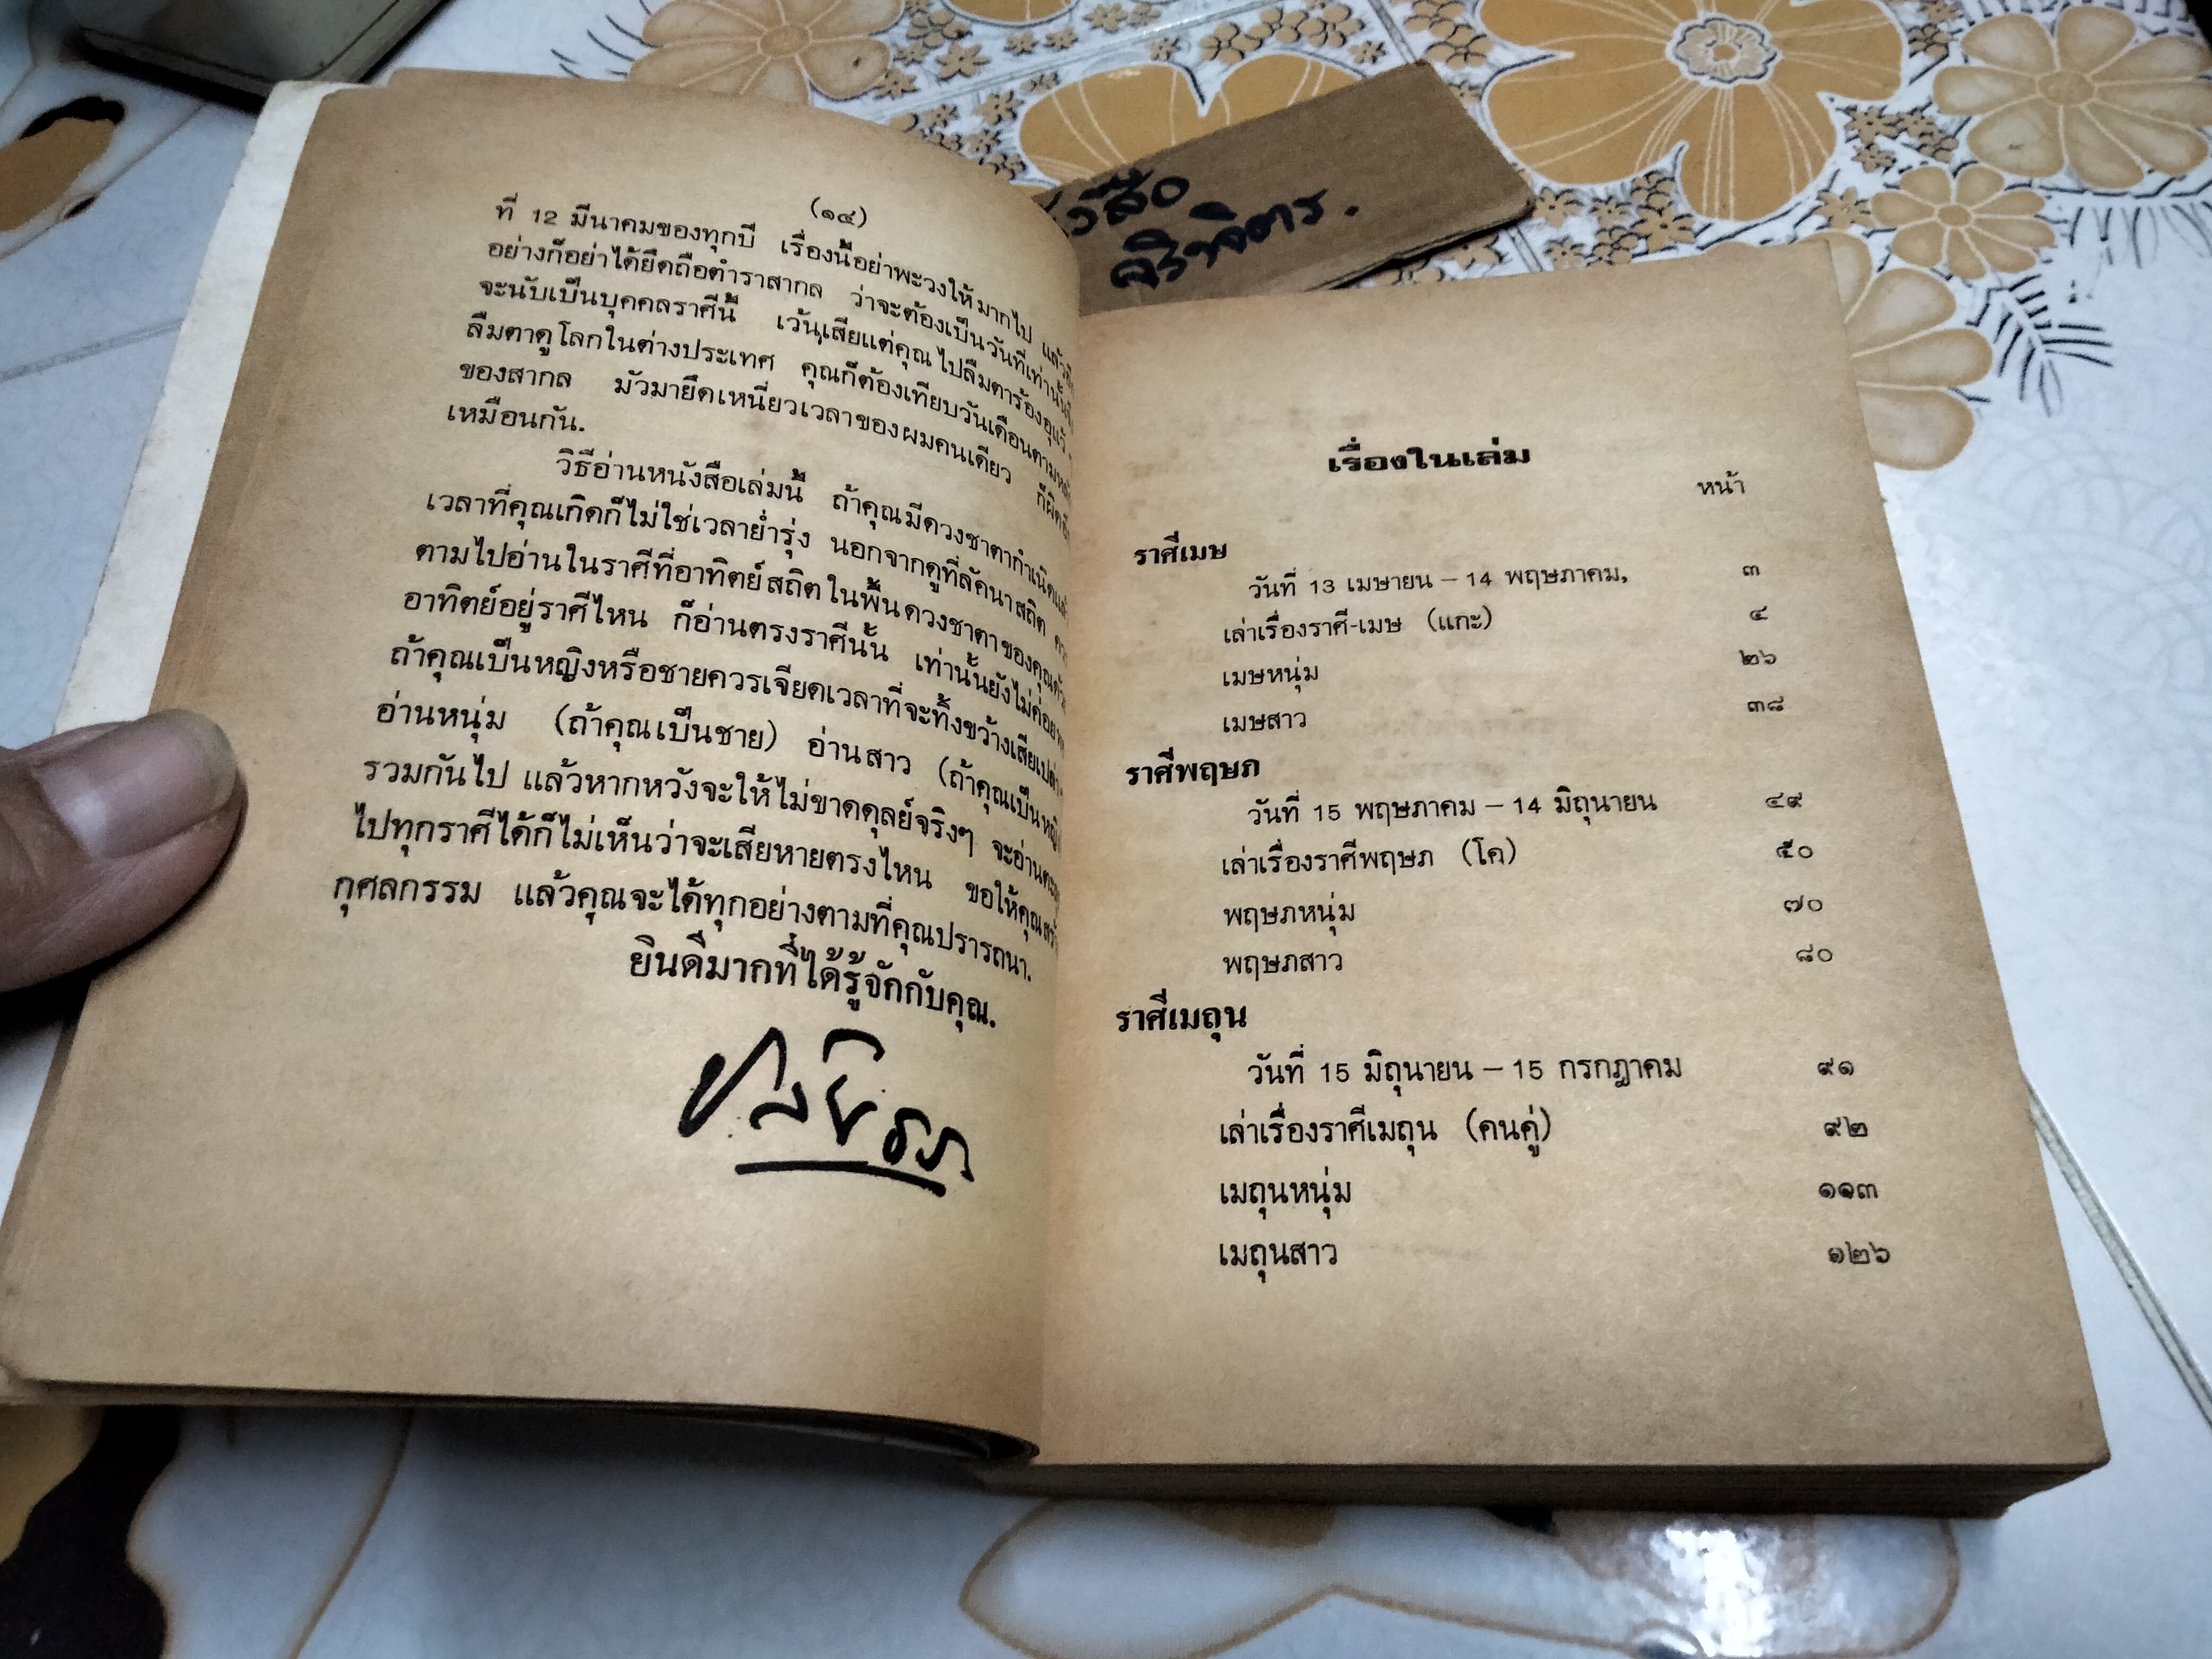 (๑๔)
ที่ 12 มีนาคมของทุกปี เรื่องนี้อย่าพะวงให้มากไป แล้ว
อย่างก็อย่าได้ยึดถือตำราสากล ว่าจะต้องเป็นวันที่เท่านั้น
จะนับเป็นบุคคลราศีนี้ เว้นเสียแต่คุณไปลืมตาร้องอุแว้
ลืมตาดูโลกในต่างประเทศ คุณก็ต้องเทียบวันเดือนตาม
ของสากล มัวมายึดเหนี่ยวเวลาของผมคนเดียว ก็ผิด
เหมือนกัน.
วิธีอ่านหนังสือเล่มนี้ ถ้าคุณมีดวงชาตากำเนิด
เวลาที่คุณเกิดก็ไม่ใช่เวลาย่ำรุ่ง นอกจากดูที่ลัคนาสถิต
ตามไปอ่านในราศีที่อาทิตย์สถิตในพื้นดวงชาตาของคุณ
อาทิตย์อยู่ราศีไหน ก็อ่านตรงราศีนั้น เท่านั้นยังไม่ค่อย
ถ้าคุณเป็นหญิงหรือชายควรเจียดเวลาที่จะทิ้งขว้างเสียเปล่า
อ่านหนุ่ม (ถ้าคุณเป็นชาย) อ่านสาว (ถ้าคุณเป็นหญิง
รวมกันไป แล้วหากหวังจะให้ไม่ขาดดุลย์จริงๆ จะอ่าน
ไปทุกราศีได้ก็ไม่เห็นว่าจะเสียหายตรงไหน ขอให้คุณ
กุศลกรรม แล้วคุณจะได้ทุกอย่างตามที่คุณปรารถนา.
ยินดีมากที่ได้รู้จักกับคุณ.
เรื่องในเล่ม
หน้า
ราศีเมษ
วันที่ 13 เมษายน – 14 พฤษภาคม, ๓
เล่าเรื่องราศี-เมษ (แกะ) ๔
เมษหนุ่ม ๒๖
เมษสาว ๓๘
ราศีพฤษภ
วันที่ 15 พฤษภาคม – 14 มิถุนายน ๔๙
เล่าเรื่องราศีพฤษภ (โค) ๕๐
พฤษภหนุ่ม ๗๐
พฤษภสาว ๘๐
ราศีเมถุน
วันที่ 15 มิถุนายน – 15 กรกฎาคม ๙๑
เล่าเรื่องราศีเมถุน (คนคู่) ๙๒
เมถุนหนุ่ม ๑๑๓
เมถุนสาว ๑๒๖